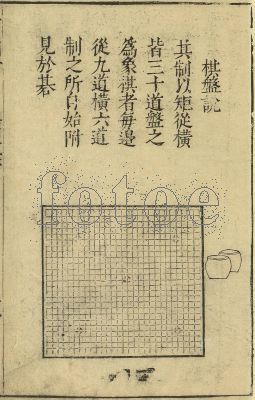 棋盤説
其制以矩從橫
皆三十道盤之
爲象祺者每邊
從九道橫六道
制之所自始附
見於碁
fotoe